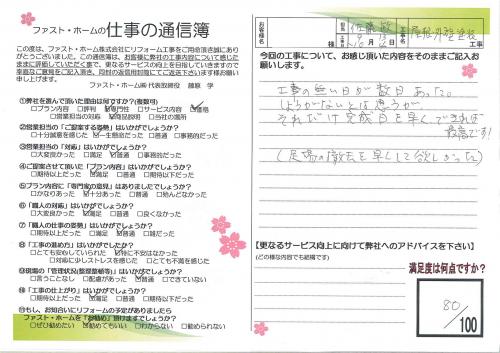 ファスト・ホームの仕事の通信簿
この度は、ファスト・ホーム株式会社にリフォーム工事をご用命頂き誠にありがとうございました。この通信簿は、お客様に弊社の工事内容について感じたままに評価していただく事で、更なるサービスの向上を目指していきますので率直なご意見をご記入頂き、同封の返信用封筒にてご返送下さいます様お願い申し上げます。
ファスト・ホーム㈱代表取締役
①弊社を選んで頂いた理由は何ですか?(複数可)
□プラン内容 □評判 専門性 □サービス内容 価格
□営業担当の対応 □商品説明 □当社の場所
②営業担当の「ご提案する姿勢」はいかがでしたか?
□十分誠意を感じた □一生懸命だった □普通 □事務的だった
③営業担当の「対応」はいかがでしたか?
□大変良かった □満足 □普通 □事務的だった
④ご提案させて頂いた「プラン内容」はいかがでしたか?
□期待以上だった □満足 □普通 □期待以下だった
⑤プラン内容に「専門家の意見」はありましたでしょうか?
□かなりあった □十分あった □普通 □殆んどなかった
⑥「職人の対応」はいかがでしたでしょうか?
□大変良かった □満足 □普通 □良くなかった
⑦「職人の仕事の姿勢」はいかがでしたでしょうか?
□期待以上だった □満足 □普通 □期待以下だった
⑧「工事の進め方」はいかがでしたか?
□とても安心していられた □特に不安はなかった
□対応に少しストレスを感じた □とても不満を感じた
⑨現場の「管理状況(整理整頓等)」はいかがでしょうか?
□言うことなし □配慮があった □普通 □できていない
⑩「工事の仕上がり」はいかがでしょうか?
□期待以上だった □満足 □普通 □期待以下だった
⑪もし、お知合いにリフォームの予定がありましたらファスト・ホームを「お勧め」頂けますでしょうか?
□ぜひ勧めたい □勧めてもいい □わからない □勧められない
お客様名
様
工事名
屋根外壁塗装
工事
今回の工事について、お感じ頂いた内容をそのままご記入お願いします。
工事の無い日が数日あった。
しょうがないとは思うが、
それだけ完成日を早くできれば
最高です!
(足場の撤去を早くして欲しかった)
【更なるサービス向上に向けて弊社へのアドバイスを下さい】
(どの様な内容でも結構です)
満足度は何点ですか?
80/
100